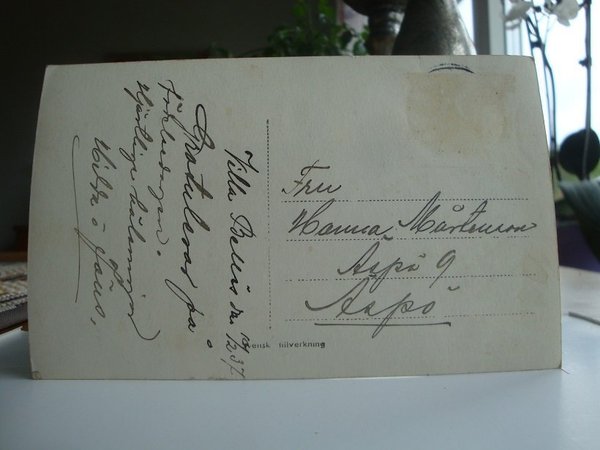 Villa Bellis den 10/12 37.
Gratuleras på
födelsedagen.
Hjärtliga hälsningar
Hilda o Jöns.
Fru
Hanna Mårtenson
Aspö 9
Aspö
Svensk tillverkning